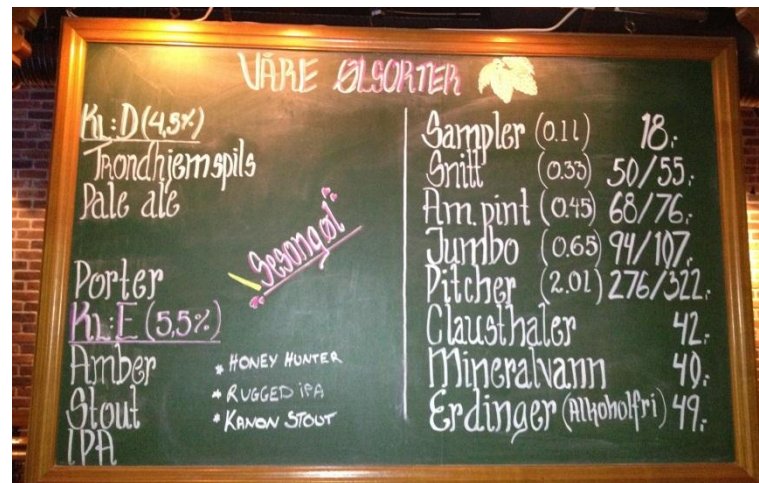 VÅRE ØLSORTER
KL:D (4,5%)
Trondhjemspils
Pale ale
Porter
KL:E (5,5%)
Amber
Stout
IPA
Sesongøl
* HONEY HUNTER
* RUGGED iPA
* KANON STOUT
Sampler (0.1l) 18.-
Snitt (0.33) 50/55.-
Am.pint (0.45) 68/76.-
Jumbo (0.65) 94/107.-
Pitcher (2.0l) 276/322.-
Clausthaler 42.-
Mineralvann 40.-
Erdinger (Alkoholfri) 49.-